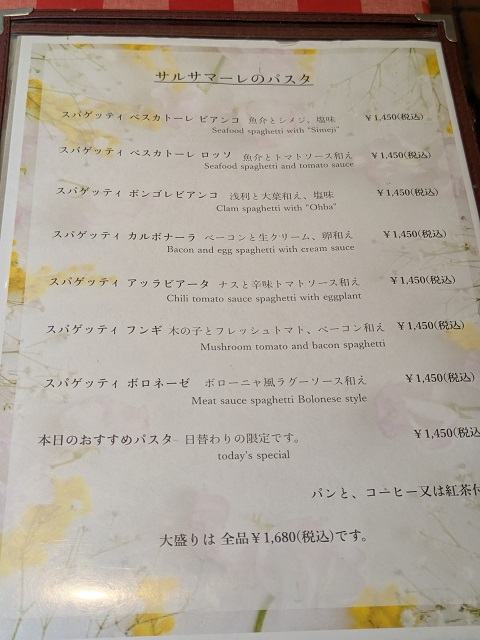 サルサマーレのパスタ
スパゲッティ ペスカトーレ ビアンコ 魚介とシメジ、塩味 ¥1,450(税込)
Seafood spaghetti with "Simeji"
スパゲッティ ペスカトーレ ロッソ 魚介とトマトソース和え ¥1,450(税込)
Seafood spaghetti and tomato sauce
スパゲッティ ボンゴレビアンコ 浅利と大葉和え、塩味 ¥1,450(税込)
Clam spaghetti with "Ohba"
スパゲッティ カルボナーラ ベーコンと生クリーム、卵和え ¥1,450(税込)
Bacon and egg spaghetti with cream sauce
スパゲッティ アッラビアータ ナスと辛味トマトソース和え ¥1,450(税込)
Chili tomato sauce spaghetti with eggplant
スパゲッティ フンギ 木の子とフレッシュトマト、ベーコン和え ¥1,450(税込)
Mushroom tomato and bacon spaghetti
スパゲッティ ボロネーゼ ボローニャ風ラグーソース和え ¥1,450(税込)
Meat sauce spaghetti Bolonese style
本日のおすすめパスタ 日替わりの限定です。 ¥1,450(税込
today's special
パンと、コーヒー又は紅茶付
大盛りは 全品¥1,680(税込)です。